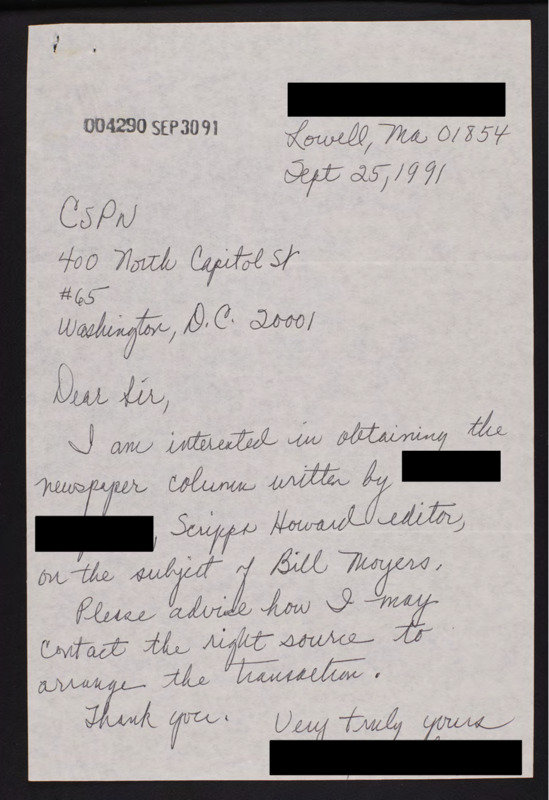 004290 SEP 30 91
Lowell, Ma 01854
Sept 25, 1991
CSPN
400 North Capitol St
#65
Washington, D.C. 20001
Dear Sir,
I am interested in obtaining the
newspaper column written by
, Scripps Howard editor,
on the subject of Bill Moyers.
Please advise how I may
contact the right source to
arrange the transaction.
Thank you. Very truly yours